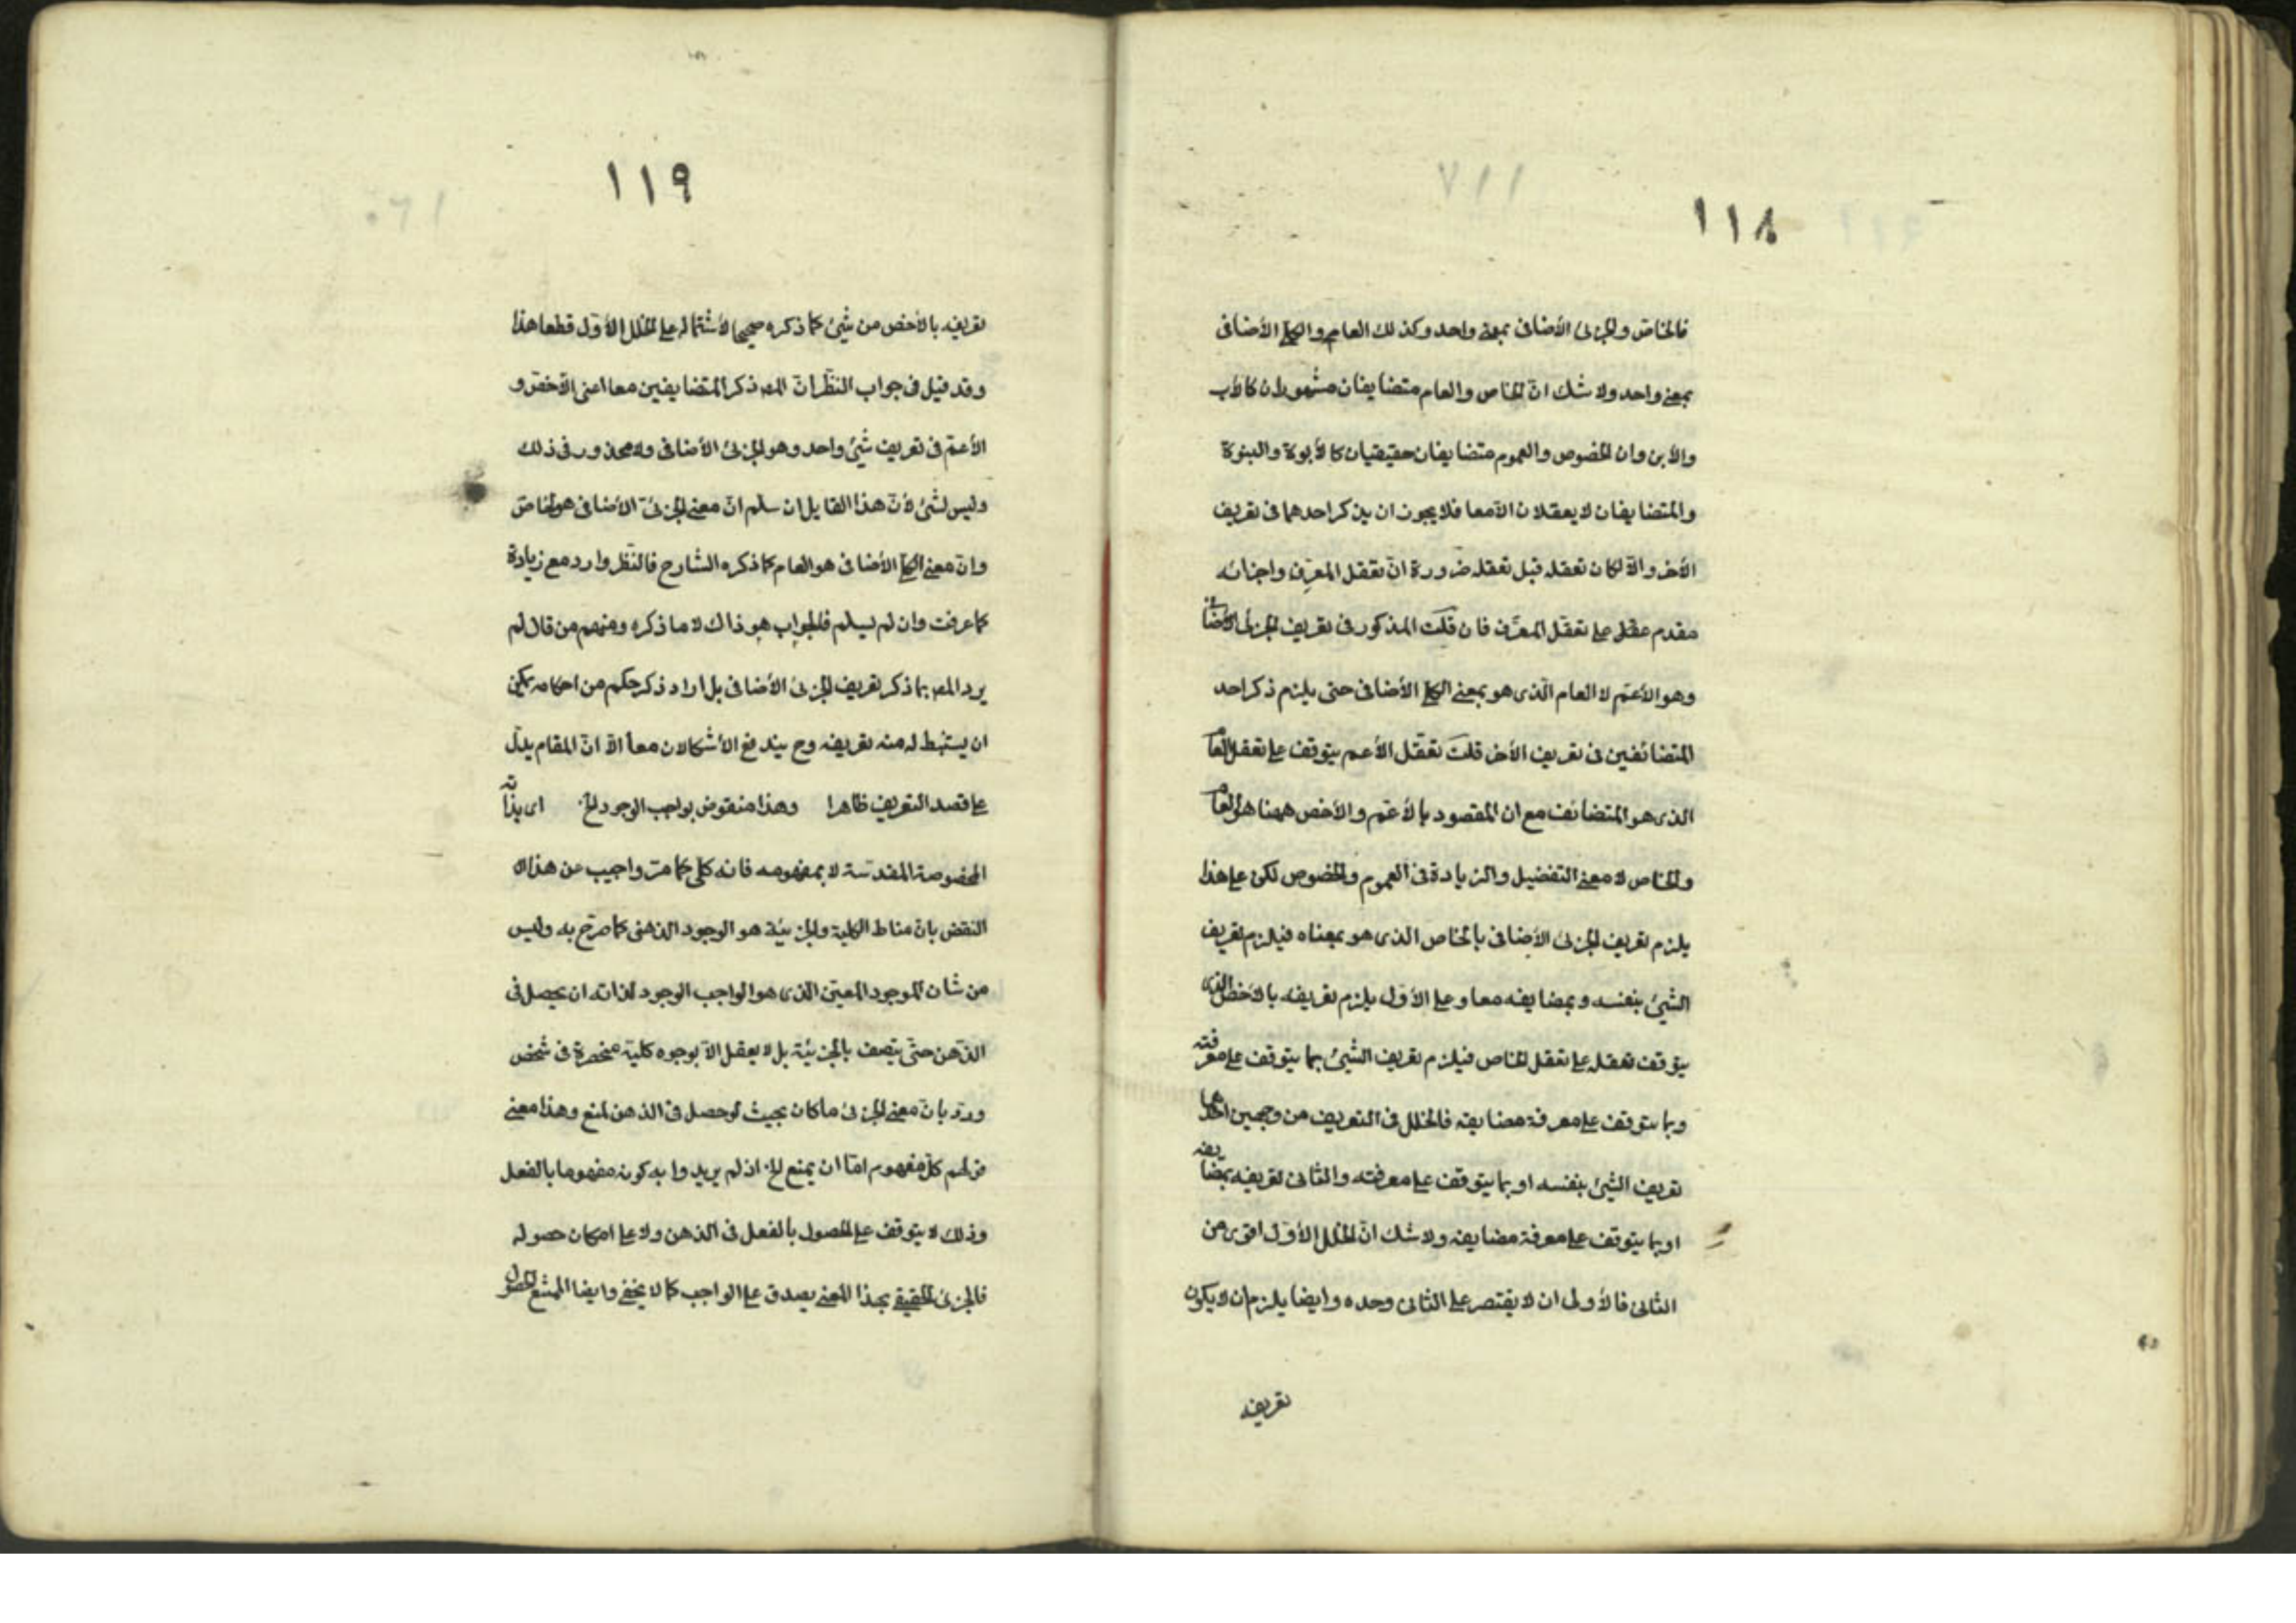 ١١٨
فالخاص والجزئى الأضافى بمعنى واحد وكذلك العام والكلى الأضافى
بمعنى واحد ولا شك انّ الخاص والعام متضايفان مشهوران كالأب
والأبن وان الخصوص والعموم متضايفان حقيقيان كالأبوة والبنوة
والمتضايفان لا يعقلان الّا معا فلا يجوز ان يذكر احدهما فى تعريف
الأخر والّا لكان تعقله قبل تعقله ضرورة انّ تعقل المعرِّف واجزائه
مقدم على تعقل المعرَّف فان قلت المذكور فى تعريف الجزئى الأضافى
وهو الأعمّ لا العام الّذى هو بمعنى الكلى الأضافى حتى يلزم ذكر احد
المتضائفين فى تعريف الأخر قلت تعقّل الأعم يتوقف على تعقل العام
الذى هو المتضائف مع ان المقصود بالأعمّ والأخص ههنا هو العام
والخاص لا معنى التفضيل والزيادة فى العموم والخصوص لكن على هذا
يلزم تعريف الجزئى الأضافى بالخاص الذى هو بمعناه فيلزم تعريف
الشيئ بنفسه وبمضايفه معا وعلى الأوّل يلزم تعريفه بالأخص الذى
يتوقف تعقله على تعقل الخاص فيلزم تعريف الشيئ بما يتوقف على معرفته
وبما يتوقف على معرفة مضايفه فالخلل فى التعريف من وجهين احدهما
تعريف الشيئ بنفسه او بما يتوقف على معرفته والثانى تعريفه بمضايفه
او بما يتوقف على معرفة مضايفه ولا شك انّ الخلل الأوّل اقوى من
الثانى فالأولى ان لا يقتصر على الثانى وحده وايضا يلزم ان لا يكون
تعريفه
١١٩
تعريفه بالأخص من شيئ كما ذكره صحيحا لأشتماله على الخلل الأوّل قطعا هذا
وقد قيل فى جواب النظر انّ المصـ ذكر المتضايفين معا اعنى الأخصّ و
الأعمّ فى تعريف شيئ واحد وهو الجزئى الأضافى ولا محذور فى ذلك
وليس لشئ لأنّ هذا القايل ان سلم انّ معنى الجزئى الأضافى هو الخاصّ
وانّ معنى الكلى الأضافى هو العام كما ذكره الشارح فالنّظر وارد مع زيادة
كما عرفت وان لم يسلم فالجواب هو ذاك لا ما ذكره ومنهم من قال لم
يرد المصـ بما ذكر تعريف الجزئى الأضافى بل اراد ذكر حكم من احكامه يمكن
ان يستنبط له منه تعريفه وح يندفع الأشكالان معا الّا انّ المقام يدلّ
على قصد التعريف ظاهرا وهذا منقوض بواجب الوجود الخ اى بذاته
المخصوصة المقدّسة لا بمفهومه فانه كلى كما مرّ واجيب عن هذا
النقض بانّ مناط الكلية والجزئيّة هو الوجود الذهنى كما صرّح به وليس
من شان الموجود المعيّن الذى هو الواجب الوجود لذاته ان يحصل فى
الذّهن حتّى يتصف بالجزئيّة بل لا يعقل الّا بوجوه كلية منحصرة فى شخص
وردّ بانّ معنى الجزئى ما كان بحيث لو حصل فى الذهن لمنع وهذا معنى
قولهم كلّ مفهوم امّا ان يمنع الخ اذ لم يريدوا به كونه مفهوما بالفعل
وذلك لا يتوقف على الحصول بالفعل فى الذهن ولا على امكان حصوله
فالجزئى الحقيقى بهذا المعنى يصدق على الواجب كما لا يخفى وايضا الممتنع الحصول